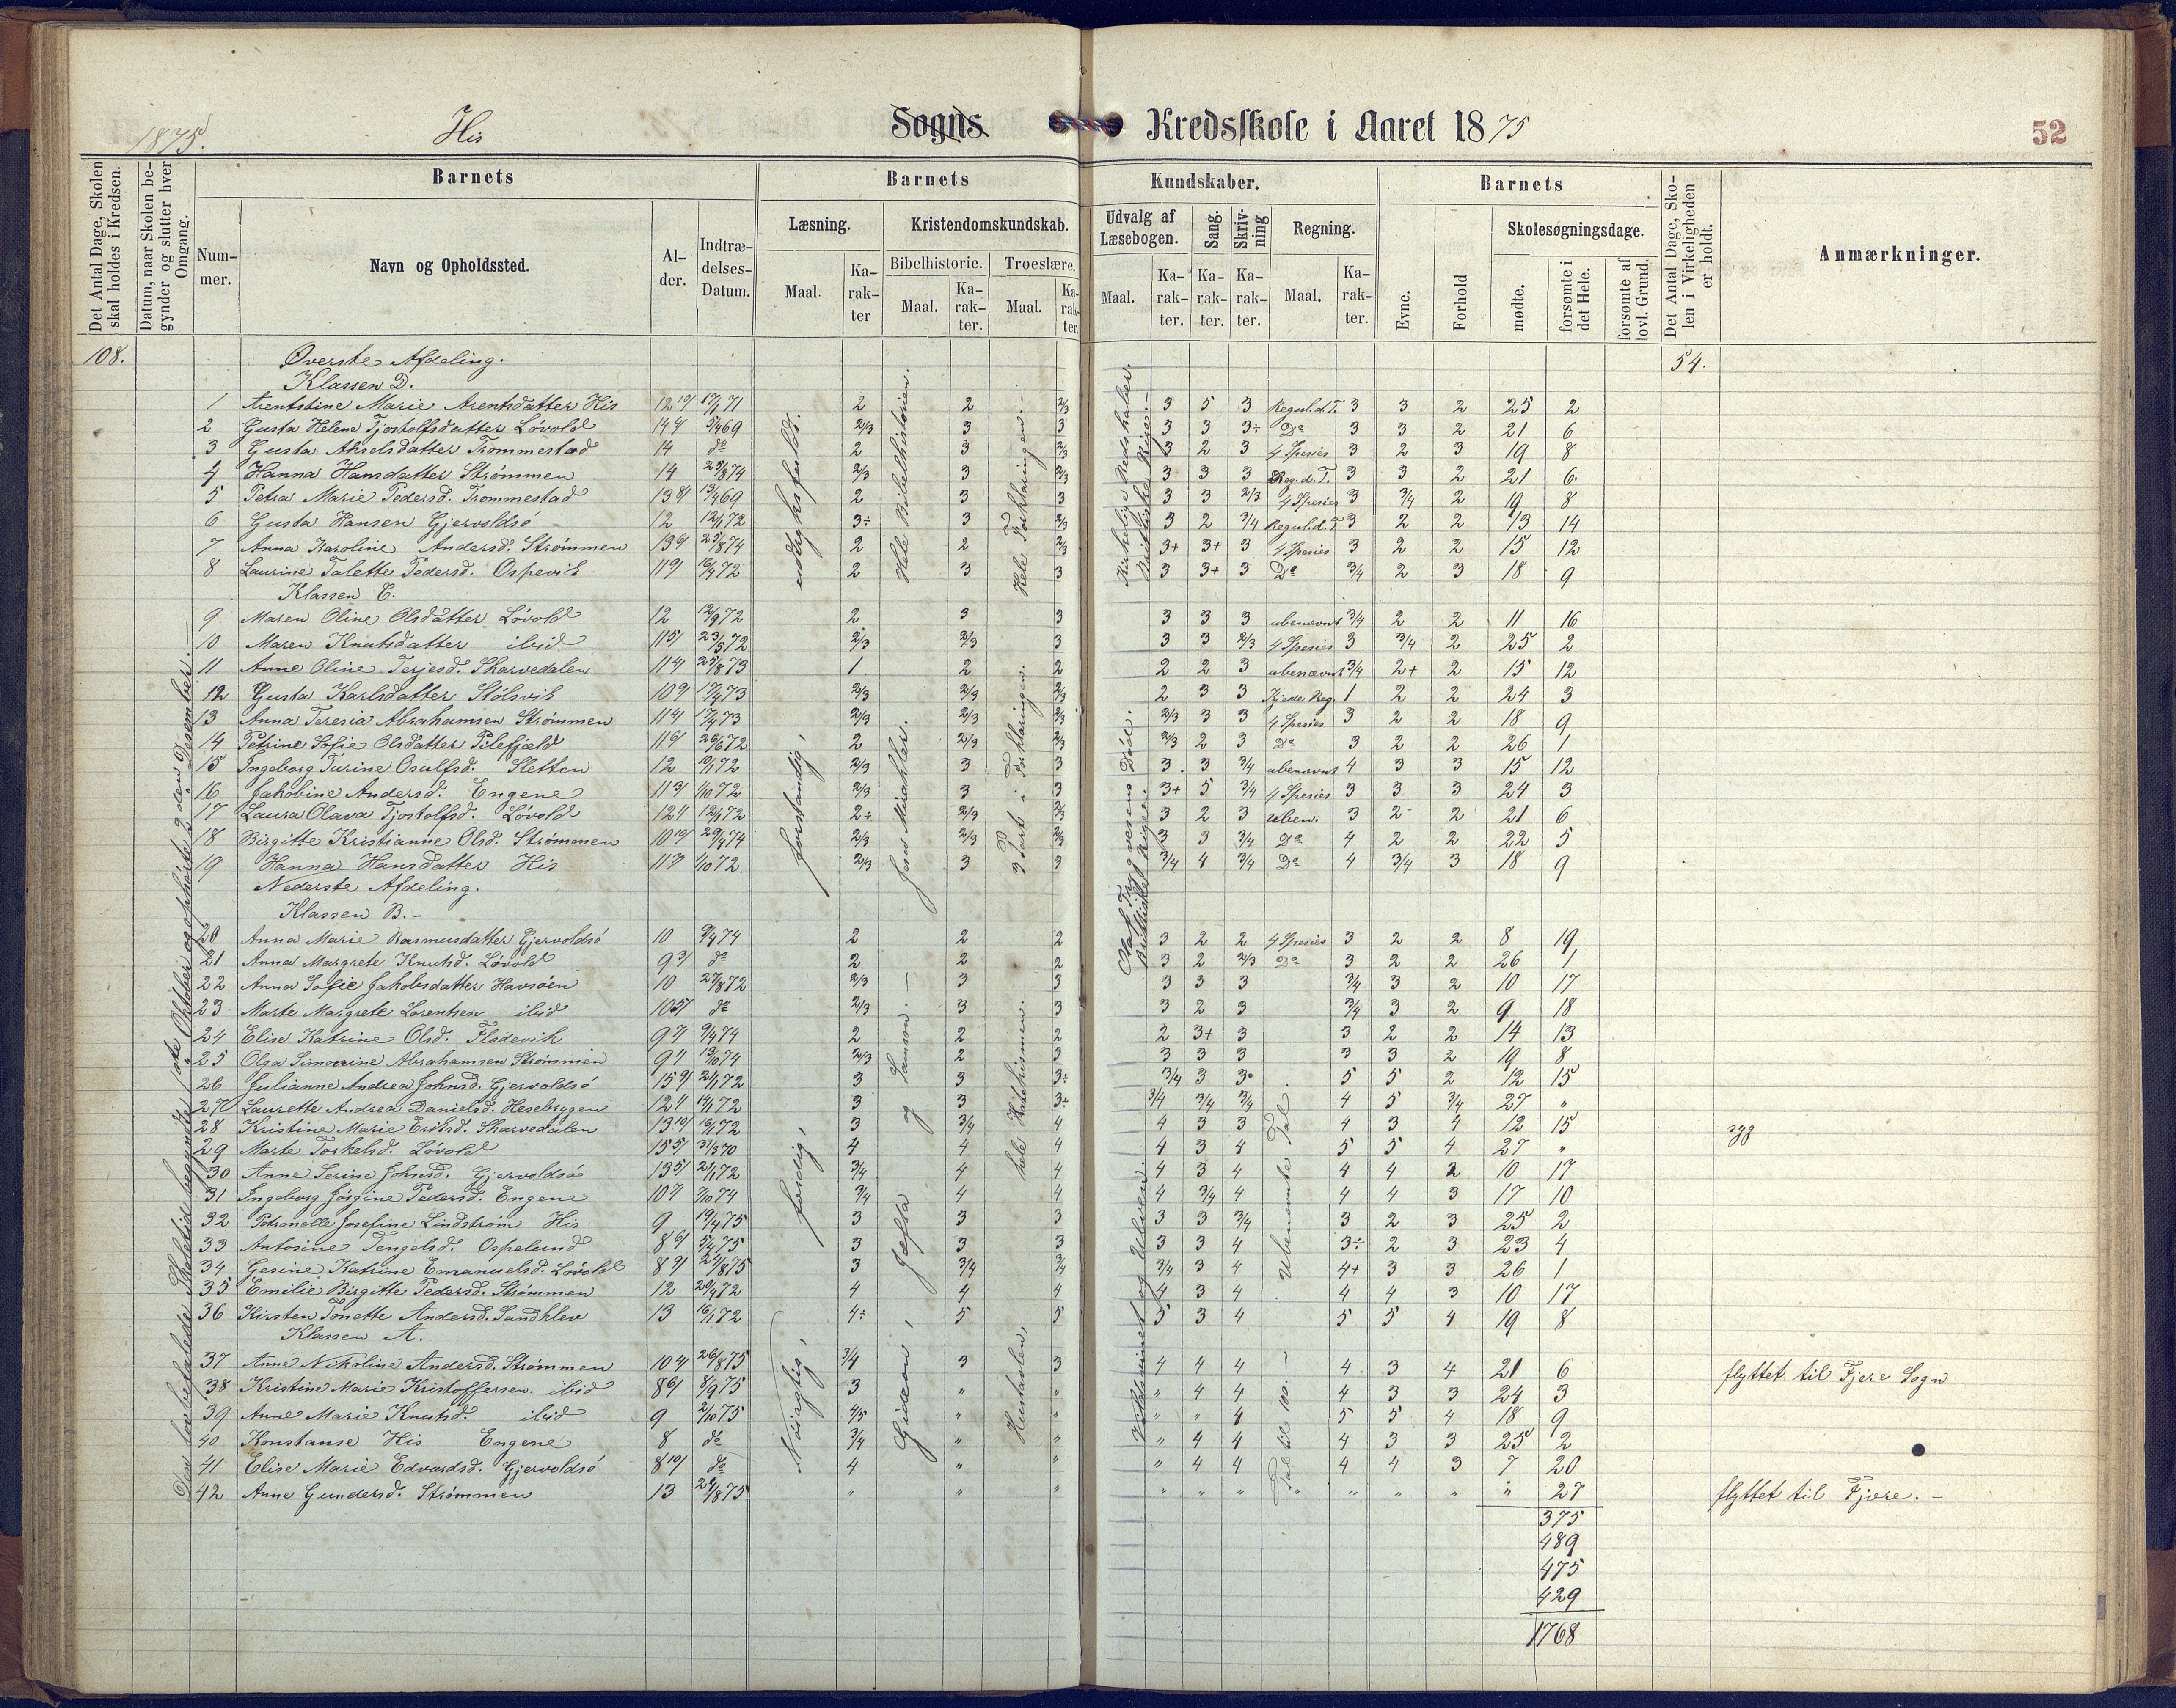 1875.
His
Sogns Kredsskole i Aaret 1875
52
Det Antal Dage, Skolen skal holdes i Kredsen.
Datum, naar Skolen begynder og slutter hver Omgang.
Barnets
Nummer.
Navn og Opholdssted.
Alder.
Indtrædelses-Datum.
Barnets Kundskaber.
Læsning.
Maal.
Karakter
Kristendomskundskab.
Bibelhistorie.
Maal.
Karakter.
Troeslære.
Maal.
Karakter.
Udvalg af Læsebogen.
Maal.
Karakter.
Sang.
Karakter.
Skrivning
Karakter.
Regning.
Maal.
Karakter.
Barnets
Evne.
Forhold
Skolesøgningsdage.
mødte.
forsømte i det Hele.
forsømte af lovl. Grund.
Det Antal Dage, Skolen i Virkeligheden er holdt.
Anmærkninger.
108.
54.
Øverste Afdeling.
Klassen D.
1 Arentstine Marie Arentsdatter His 2 2 2/3 3 5 3 Regul.d.T. 3 3 2 25 2
2 Gusta Helene Tjostolfsdatter Løvold 2/3 3 3 3 3 3÷ Do 3 3 2 21 6
3 Gusta Akselsdatter Trommestad 14 do 2 3 2/3 3 2 3 4 Spesies 3 2 3 19 8
4 Hanna Hansdatter Strømmen 14 25/8 74 2/3 3 2/3 3 3 3 Reg.d.T. 3 3 2 21 6
5 Petra Marie Pedersd. Trommestad 2 3 3 3 3 2/3 4 Spesies 3 3/4 2 19 8
6 Gusta Hansen Gjervoldsø 12 12/1 72 3÷ 3 2/3 3 2 3/4 Regul.d.T. 3 2 2 13 14
7 Anna Karoline Andersd. Strømmen 2 2 2/3 3+ 3+ 3 4 Spesies 3 2 2 15 12
8 Laurine Talette Pedersd. Ospevik 2 3 3 3 3+ 3 Do 3/4 2 3 18 9
Klassen C.
9 Maren Oline Olsdatter Løvold 12 12/9 72 2 3 3 3 3 3 ubenævnt 3/4 2 2 11 16
10 Maren Knutsdatter ibid 2/3 2/3 3 3 3 2/3 4 Spesies 3 3/4 2 25 2
11 Anne Oline Terjesd. Skarvedalen 1 2 2 2 2 3 ubenævnt 3/4 2+ 2 15 12
12 Gusta Karlsdatter Stølsvik 2/3 2/3 2/3 2 3 3 Kjede Reg. 1 2 2 24 3
13 Anna Teresia Abrahamsen Strømmen 2/3 2/3 2/3 2/3 3 3 4 Spesies 3 2 2 18 9
14 Petrine Sofie Olsdatter Pilefjæld 2 2/3 2/3 2/3 2 3 Do 3 2 2 26 1
15 Ingeborg Turine Osulfsd. Sletten 12 10/1 72 2/3 3 3 3 3 3/4 ubenævnt 4 3 3 15 12
16 Jakobine Andersd. Engene 2/3 3 3 3+ 5 3/4 4 Spesies 3 3 3 24 3
17 Laura Olava Tjostolfsd. Løvold 2÷ 2/3 2/3 3 2 3 uben. 3 2 2 21 6
18 Birgitte Kristianne Olsd. Strømmen 2/3 2/3 2/3 3 3 3/4 Do 4 2 2 22 5
19 Hanna Hansdatter His 2/3 3 3 3/4 4 3/4 Do 4 3/4 3 18 9
Nederste Afdeling.
Klassen B.-
20 Anna Marie Rasmusdatter Gjervoldsø 10 9/4 74 2 2 2 3 2 2 4 Spesies 3 2 2 8 19
21 Anna Margrete Knutsd. Løvold do 2 2 2 3 2 2/3 Do 3 2 2 26 1
22 Anna Sofie Jakobsdatter Havsøen 10 27/8 72 2/3 3 3 3 3 3 3/4 3 2 10 17
23 Marte Margrete Lorentsen ibid do 2/3 3 3 3 2 3 3/4 3 2 9 18
24 Elise Katrine Olsd. Flødevik 2 2 2 2 3+ 3 3 2 2 14 13
25 Olga Simonine Abrahamsen Strømmen 2/3 2 3 3 3 3 3 3 2 19 8
26 Julianne Andrea Johnsd. Gjervoldsø 3 3 3÷ 3/4 3 3 5 5 2 12 15
27 Laurette Andrea Danielsd. Hesebryggen 3 3 3÷ 3/4 3/4 3/4 4 5 3/4 27 "
28 Kristine Marie Eriksd. Skarvedalen 3 3/4 4 4 3 3 4 3 4 12 15 syg
29 Marte Torkelsd. Løvold 4 4 4 4 3 4 5 5 4 27 "
30 Anne Serine Johnsd. Gjervoldsø 3/4 4 4 4 3 4 4 4 2 10 17
31 Ingeborg Jørgine Pedersd. Engene 3/4 4 4 4 3/4 4 4 4 3 17 10
32 Petronelle Josefine Lindstrøm His 9 19/4 75 3 3 3 3 3 3/4 3 2 3 25 2
33 Antosine Tengelsd. Ospelund 3 3 3 3 3 4 3÷ 2 3 23 4
34 Gesine Katrine Emanuelsd. Løvold 3 3/4 3/4 3/4 3 4 4+ 3 3 26 1
35 Emilie Birgitte Pedersd. Strømmen 12 4 4 4 4 3 4 4 4 3 10 17
36 Kirsten Tomette Andersd. Sandklev 13 16/1 72 4÷ 5 5 5 3 4 5 5 4 19 8
Klassen A.
37 Anne Nikoline Andersd. Strømmen 3/4 3 3 4 4 4 4 3 4 21 6 flyttet til Fjere Sogn
38 Kristine Marie Kristoffersen. ibid 3 " " " 4 4 4 3 3 24 3
39 Anne Marie Knutsd. ibid 9 2/10 75 4/5 " " " " 4 5 5 4 18 9
40 Konstanse His Engene 8 do 3/4 " " " 4 4 4 3 3 25 2
41 Elise Marie Edvardsd. Gjervoldsø do 4 " " " 4 4 4 4 3 7 20
42 Anne Gundersd. Strømmen 13 " " " " " " " " " " " 27 flyttet til Fjære.-
375
489
475
429
1768
Den lovbefalede Skoletid begyndte Oktober og ophørte 2den Desember.
udtryksfuldt.
forstandig,
færdig,
Nøiagtig,
Hele Bibelhistorien.
Jesu Mirakler.
Gideon, Jefta og Samson.
Hele Forklaringen.
3 Part i Forklaringen.
hele Katekismen.
Hustavlen,
Kirkelige Redskaber.
Brittiske Rige.
Olaf Trygvesens Død.
Brittiske Rige.
og Ulven.
Ubenævnte Tal.
Tal til 100.